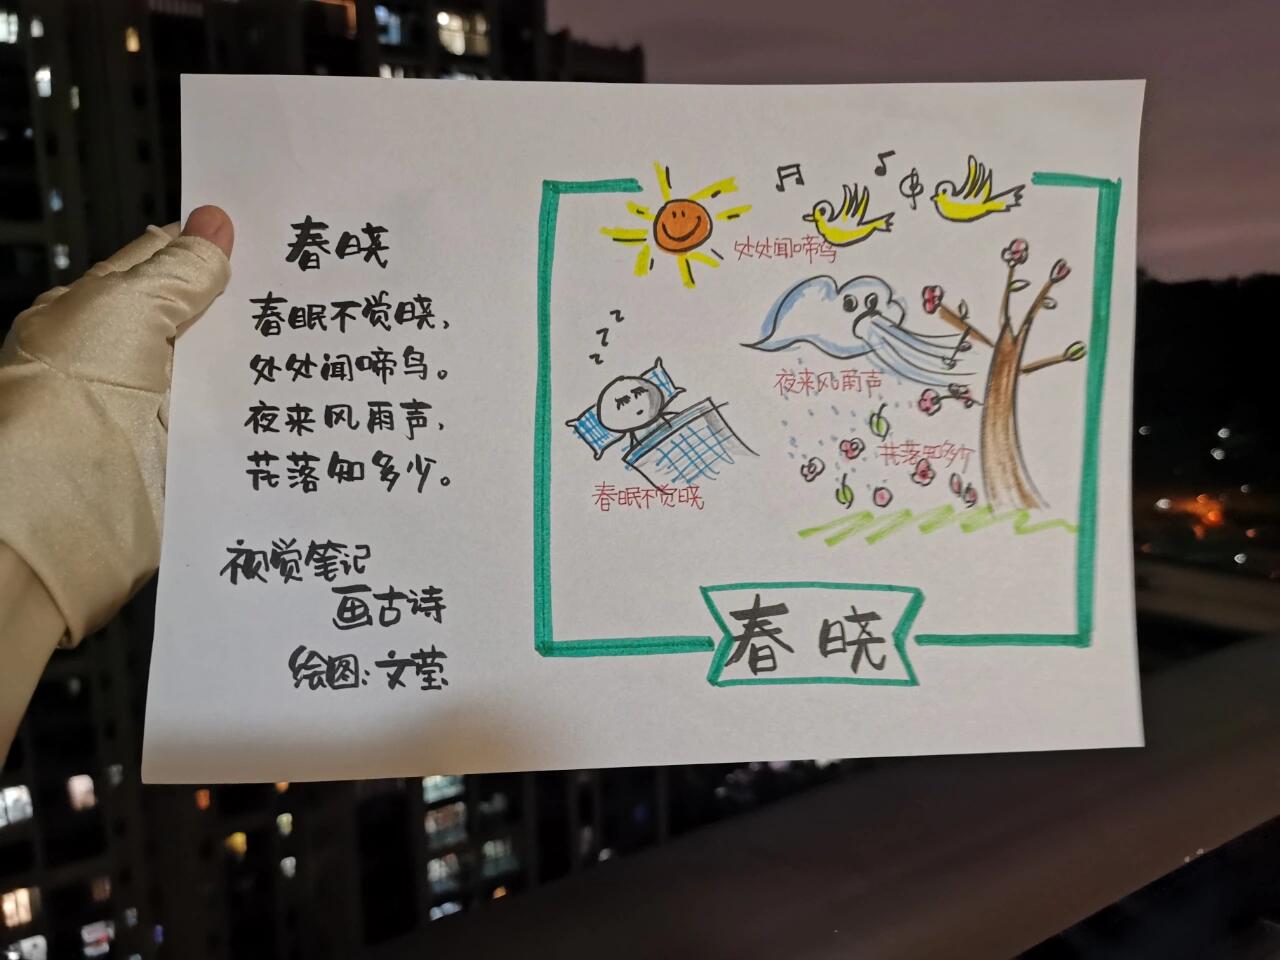 春晓
春眠不觉晓，
处处闻啼鸟。
夜来风雨声，
花落知多少。
视觉笔记
画古诗
绘图：文莹
处处闻啼鸟
夜来风雨声
花落知多少
春眠不觉晓
春晓